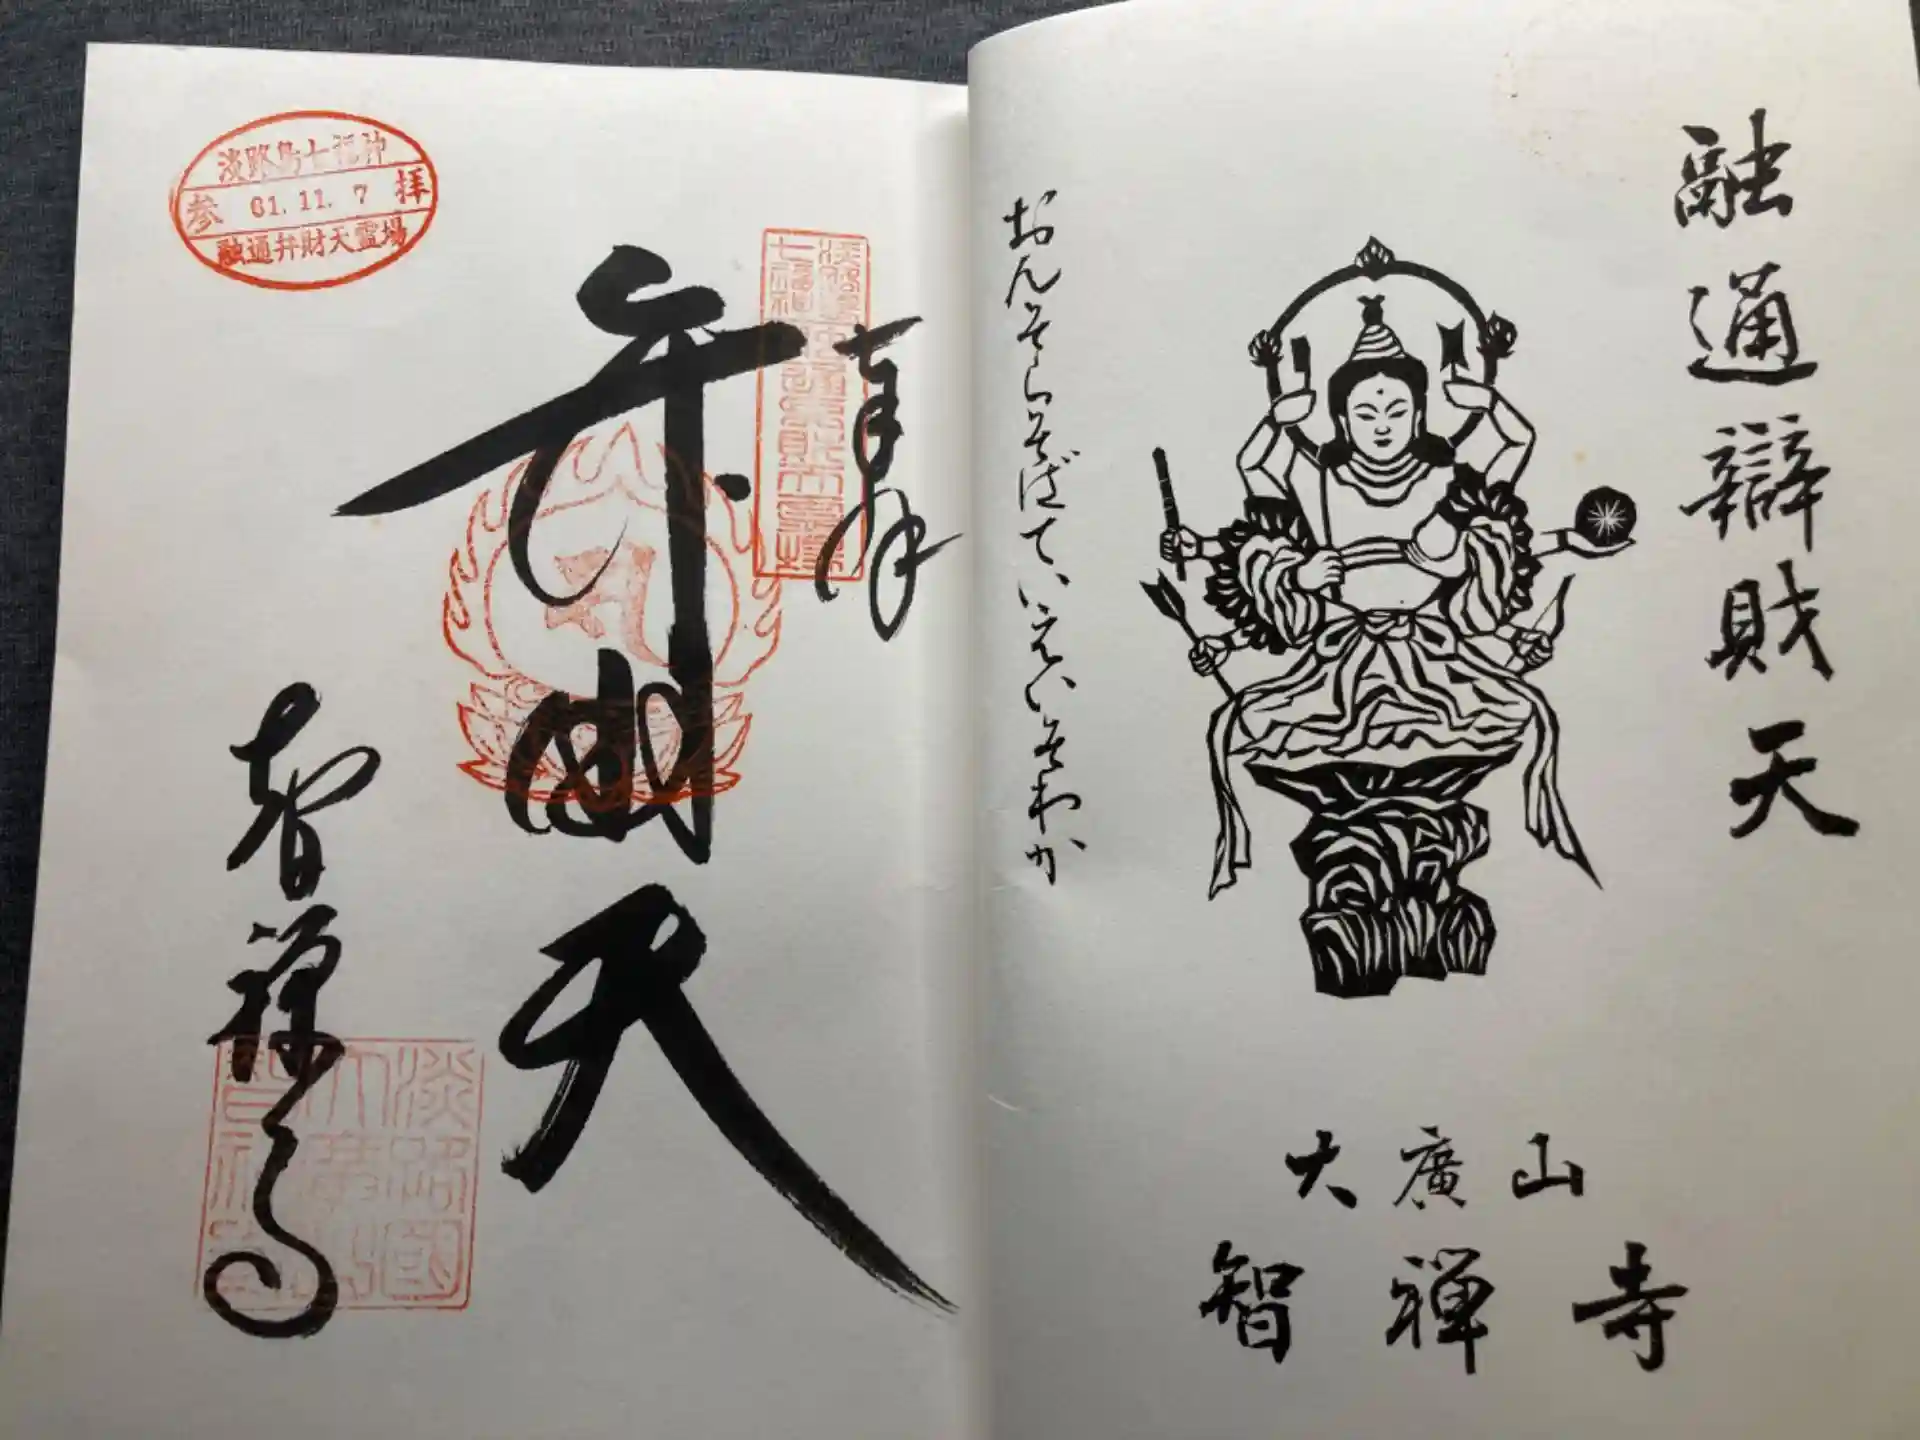 融通辯財天
おんそらそばていいえいそわか
大廣山
智禅寺
奉拝
弁財天
智禅寺
淡路島七福神
参 61.11.7 拝
融通弁財天霊場